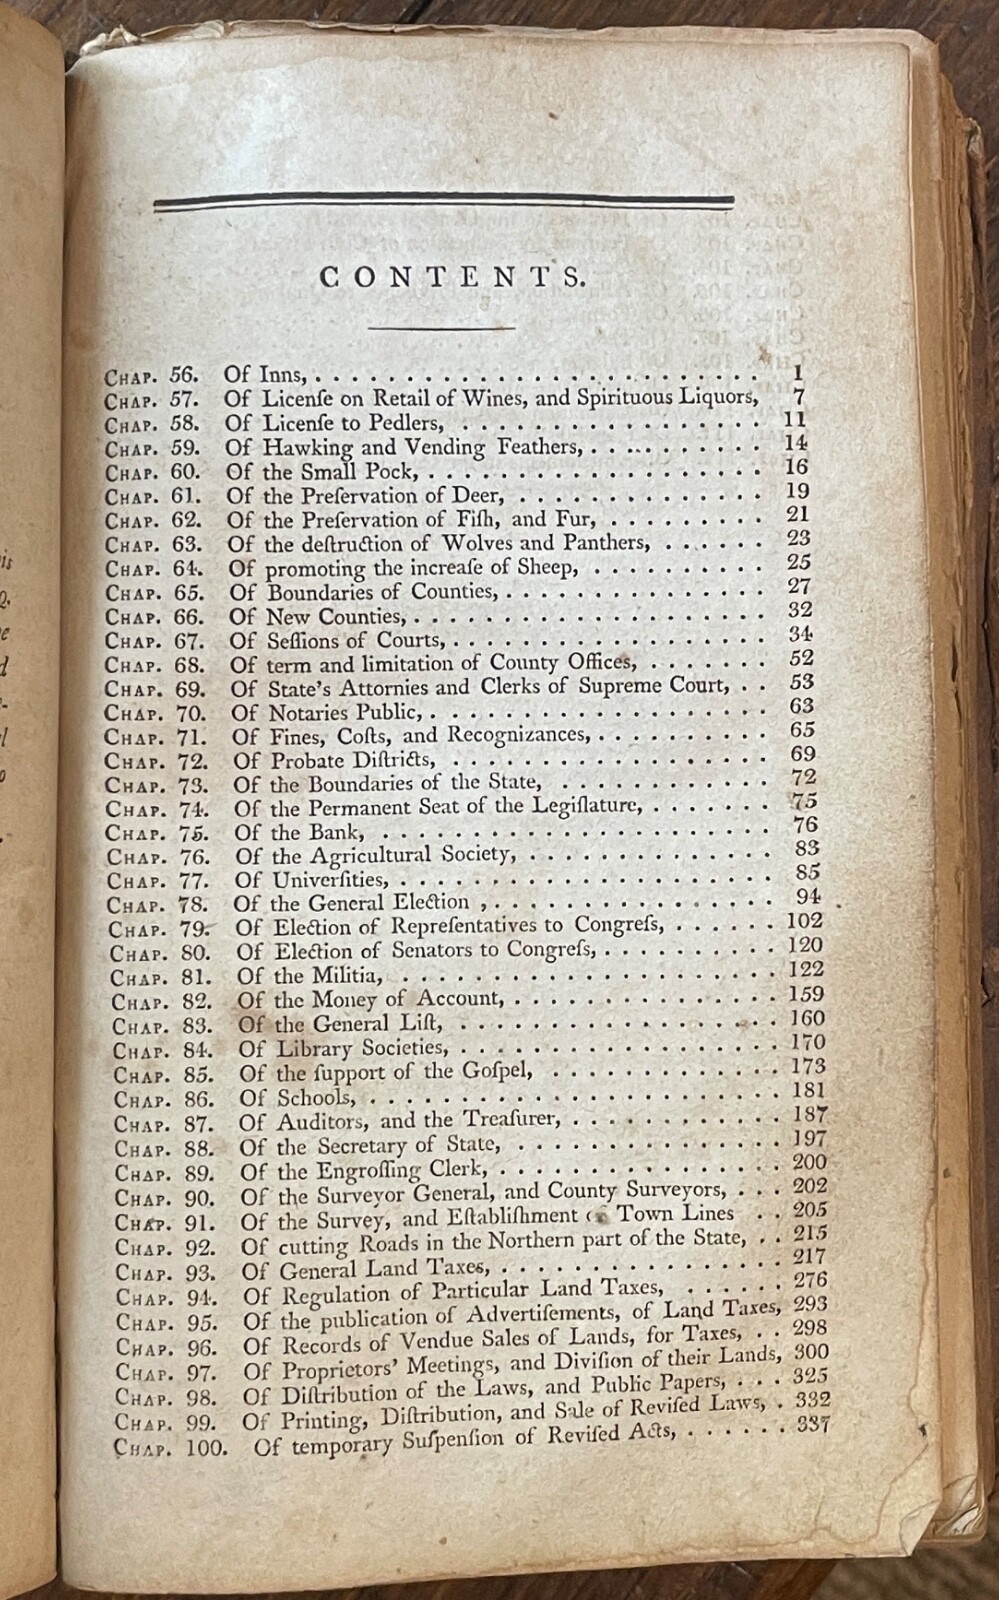 CONTENTS.
CHAP. 56. Of Inns, . . . . . . . . . . . . . . . . . . . . . . . . . 1
CHAP. 57. Of Licenſe on Retail of Wines, and Spirituous Liquors, 7
CHAP. 58. Of Licenſe to Pedlers, . . . . . . . . . . . . . . . . . 11
CHAP. 59. Of Hawking and Vending Feathers, . . . . . . . . . . 14
CHAP. 60. Of the Small Pock, . . . . . . . . . . . . . . . . . . . 16
CHAP. 61. Of the Preſervation of Deer, . . . . . . . . . . . . . . 19
CHAP. 62. Of the Preſervation of Fiſh, and Fur, . . . . . . . . . 21
CHAP. 63. Of the deſtruction of Wolves and Panthers, . . . . . . 23
CHAP. 64. Of promoting the increaſe of Sheep, . . . . . . . . . . 25
CHAP. 65. Of Boundaries of Counties, . . . . . . . . . . . . . . . 27
CHAP. 66. Of New Counties, . . . . . . . . . . . . . . . . . . . . 32
CHAP. 67. Of Seſſions of Courts, . . . . . . . . . . . . . . . . . . 34
CHAP. 68. Of term and limitation of County Offices, . . . . . . . 52
CHAP. 69. Of State's Attornies and Clerks of Supreme Court, . . 53
CHAP. 70. Of Notaries Public, . . . . . . . . . . . . . . . . . . . 63
CHAP. 71. Of Fines, Coſts, and Recognizances, . . . . . . . . . . 65
CHAP. 72. Of Probate Diſtricts, . . . . . . . . . . . . . . . . . . 69
CHAP. 73. Of the Boundaries of the State, . . . . . . . . . . . . 72
CHAP. 74. Of the Permanent Seat of the Legiſlature, . . . . . . . 75
CHAP. 75. Of the Bank, . . . . . . . . . . . . . . . . . . . . . . 76
CHAP. 76. Of the Agricultural Society, . . . . . . . . . . . . . . 83
CHAP. 77. Of Univerſities, . . . . . . . . . . . . . . . . . . . . . 85
CHAP. 78. Of the General Election , . . . . . . . . . . . . . . . . 94
CHAP. 79. Of Election of Repreſentatives to Congreſs, . . . . . . 102
CHAP. 80. Of Election of Senators to Congreſs, . . . . . . . . . . 120
CHAP. 81. Of the Militia, . . . . . . . . . . . . . . . . . . . . . 122
CHAP. 82. Of the Money of Account, . . . . . . . . . . . . . . . 159
CHAP. 83. Of the General Liſt, . . . . . . . . . . . . . . . . . . 160
CHAP. 84. Of Library Societies, . . . . . . . . . . . . . . . . . . 170
CHAP. 85. Of the ſupport of the Goſpel, . . . . . . . . . . . . . 173
CHAP. 86. Of Schools, . . . . . . . . . . . . . . . . . . . . . . . 181
CHAP. 87. Of Auditors, and the Treaſurer, . . . . . . . . . . . . 187
CHAP. 88. Of the Secretary of State, . . . . . . . . . . . . . . . 197
CHAP. 89. Of the Engroſſing Clerk, . . . . . . . . . . . . . . . . 200
CHAP. 90. Of the Surveyor General, and County Surveyors, . . . 202
CHAP. 91. Of the Survey, and Eſtabliſhment of Town Lines . . 205
CHAP. 92. Of cutting Roads in the Northern part of the State, . . 215
CHAP. 93. Of General Land Taxes, . . . . . . . . . . . . . . . . 217
CHAP. 94. Of Regulation of Particular Land Taxes, . . . . . . 276
CHAP. 95. Of the publication of Advertiſements, of Land Taxes, 293
CHAP. 96. Of Records of Vendue Sales of Lands, for Taxes, . . 298
CHAP. 97. Of Proprietors' Meetings, and Diviſion of their Lands, 300
CHAP. 98. Of Diſtribution of the Laws, and Public Papers, . . . 325
CHAP. 99. Of Printing, Diſtribution, and Sale of Reviſed Laws, . 332
CHAP. 100. Of temporary Suſpenſion of Reviſed Acts, . . . . . . 337